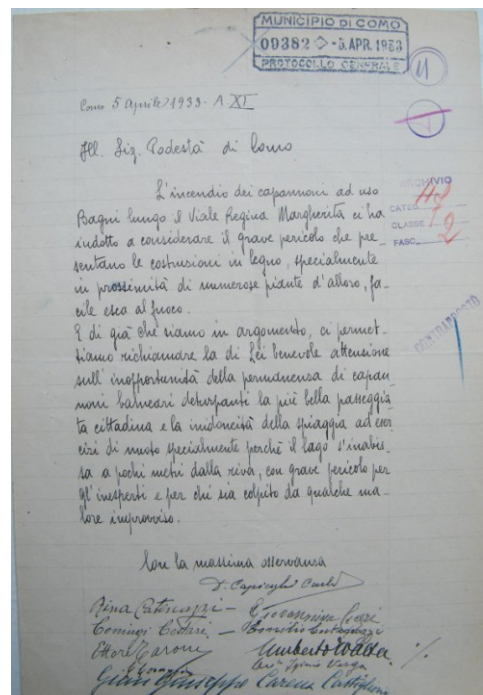 MUNICIPIO DI COMO
09382 - 5. APR. 1933
PROTOCOLLO GENERALE
Como 5 Aprile 1933 - A XI
Ill. Sig. Podestà di Como
L'incendio dei capannoni ad uso
Bagni lungo il Viale Regina Margherita ci ha
indotto a considerare il grave pericolo che pre-
sentano le costruzioni in legno, specialmente
in prossimità di numerose piante d'alloro, fa-
cile esca al fuoco.
E di già che siamo in argomento, ci permet-
tiamo richiamare la di Lei benevole attenzione
sull'inopportunità della permanenza di capan-
noni balneari deturpanti la più bella passeggia-
ta cittadina e la inidoneità della spiaggia ad eser-
cizi di nuoto specialmente perchè il lago s'inabis-
sa a pochi metri dalla riva, con grave pericolo per
gl'inesperti e per chi sia colpito da qualche ma-
lore improvviso.
Con la massima osservanza
ARCHIVIO
CATEG.
CLASSE 1
FASC. 2
Umberto
Gian Giuseppe Carena Castiglioni